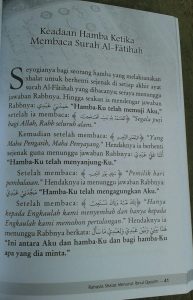 Keadaan Hamba Ketika
Membaca Surah Al-Fâtihah
Seyogianya bagi seorang hamba yang melaksanakan
shalat untuk berhenti sejenak di setiap akhir ayat
surah Al-Fâtihah yang dibacanya seraya menunggu
jawaban Rabbnya. Hingga seakan ia mendengar jawaban
Rabbnya: "Hamba-Ku telah memuji Aku."
setelah ia membaca: "Segala puji
bagi Allah, Rabb seluruh alam."
Kemudian setelah membaca: "Yang
Maha Pengasih, Maha Penyayang." Hendaknya ia berhenti
sejenak guna menunggu jawaban Rabbnya:
"Hamba-Ku telah menyanjung-Ku."
Setelah membaca: "Pemilik hari
pembalasan." Hendaknya ia menunggu jawaban Rabbnya:
"Hamba-Ku telah mengagungkan Aku."
Setelah membaca: "Hanya
kepada Engkaulah kami menyembah dan hanya kepada
Engkaulah kami memohon pertolongan." Hendaknya ia
menunggu Rabbnya berkata:
"Ini antara Aku dan hamba-Ku dan bagi hamba-Ku
apa yang dia minta."
41